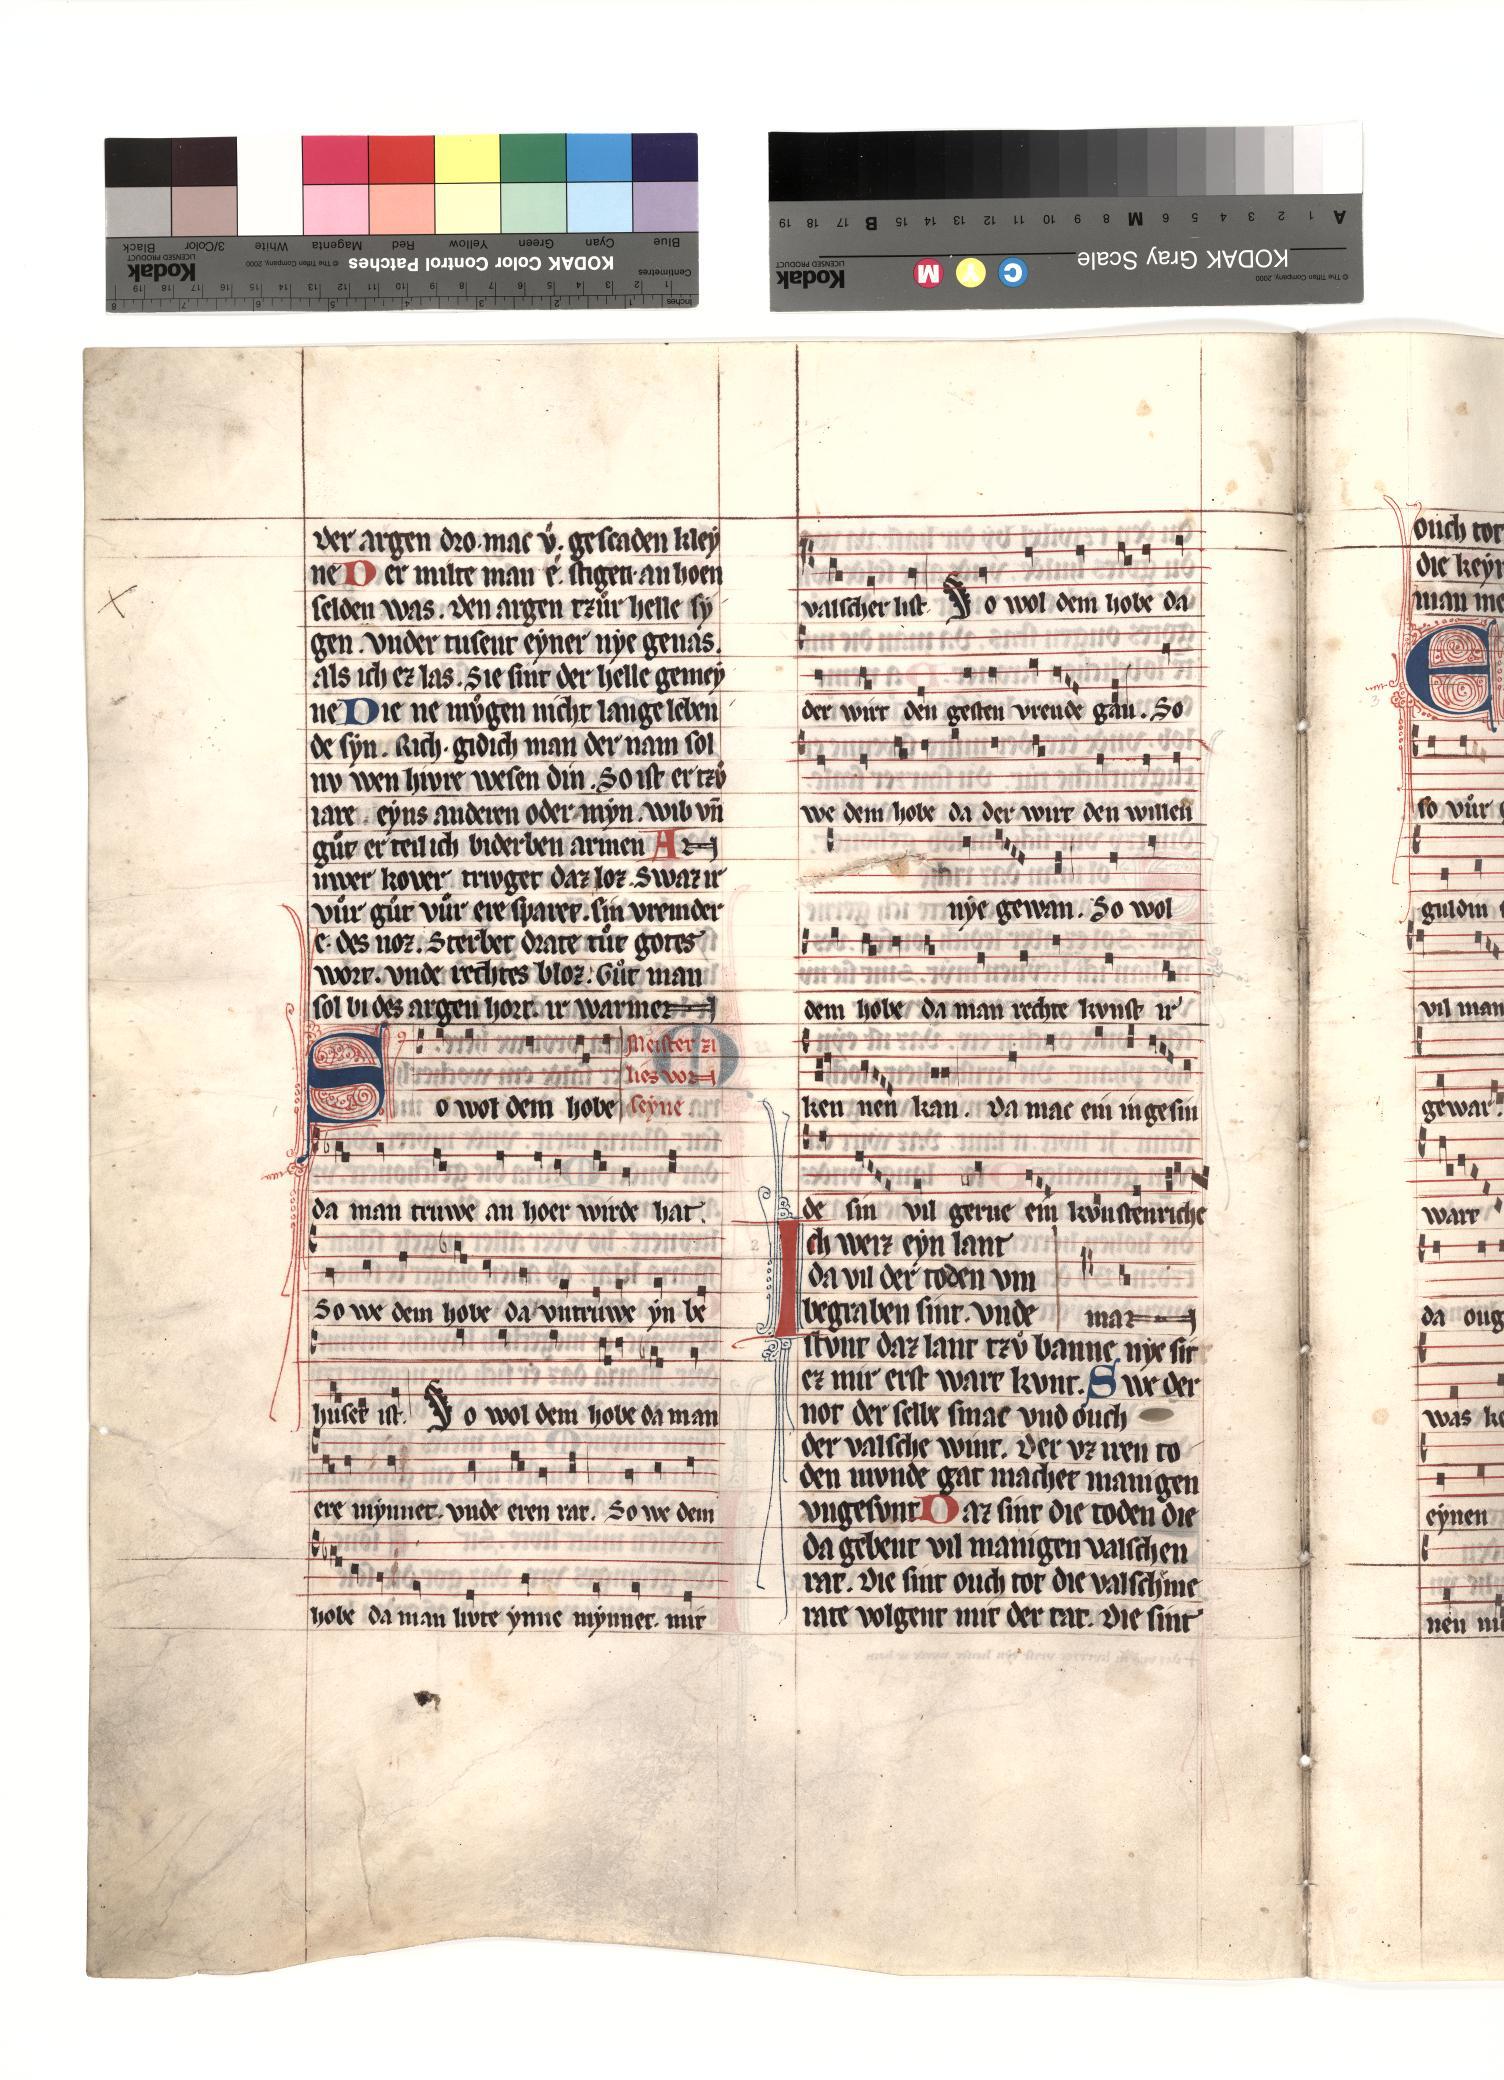 ver argen dro. mac v̾. gescaden kley
ne Der milte man e̾. stigen. an hoen
selden was. den argen tzůr helle sy
gen. vnder tusent eyner nye genas.
als ich ez las. Sie sint der helle gemey
ne Die ne můgen nicht lange leben
de syn. Rich. gidich man der nam sol
nv wen hivre wesen din. So ist er tzů
iare. eyns anderen oder myn. wib vn̄
gůt er teil ich biderben armen A
uwer kover. triuget daz loz. Swaz ir
vůr gůt vůr ere sparet. sin vremder
e. des not. Sterbet drate tůt gotes
wort. vnde rechtes bloz. Gůt man
sol bi des argen hort. ir warmet
Meister zi
lies vor
seyne
So wol dem hobe
da man truwe an hoer wirde hat.
So we dem hobe da vntruwe yn be
huset ist. So wol dem hobe da man
ere mynnet. vnde eren rat. So we dem
hobe da man livte ynne mynnet. mit
valscher list. So wol dem hobe da
der wirt den gesten vreude gan. So
we dem hobe da der wirt den willen
nye gewan. So wol
dem hobe da man rechte kvnst ir
ken nen kan. Da mac ein ingesin
de sin vil gerne ein kvnstenriche
Ich weiz eyn lant
da vil der toden vm
begraben sint. vnde mar
stvnt daz lant tzů banne nye sit
ez mir erst wart kvnt. Swe der
not der selbe smac vnd ouch
der valsche wint. Der vz iren to
den mvnde gat machet manigen
vngesvnt Daz sint die toden die
da gebent vil manigen valschen
rat. Die sint ouch tot die valschme
rate volgent mit der tat. Die sint
ouch tot
die keyn
man me
E
so vůr
guldin
vil man
gewar.
wart
da oug
was
eynen
nen
KODAK Color Control Patches
© The Tiffen Company, 2000
Kodak
LICENSED PRODUCT
Blue Cyan Green Yellow Red Magenta White 3/Color Black
Centimetres
Inches
KODAK Gray Scale
© The Tiffen Company, 2000
Kodak
LICENSED PRODUCT
C Y M
A 1 2 3 4 5 6 M 8 9 10 11 12 13 14 15 B 17 18 19